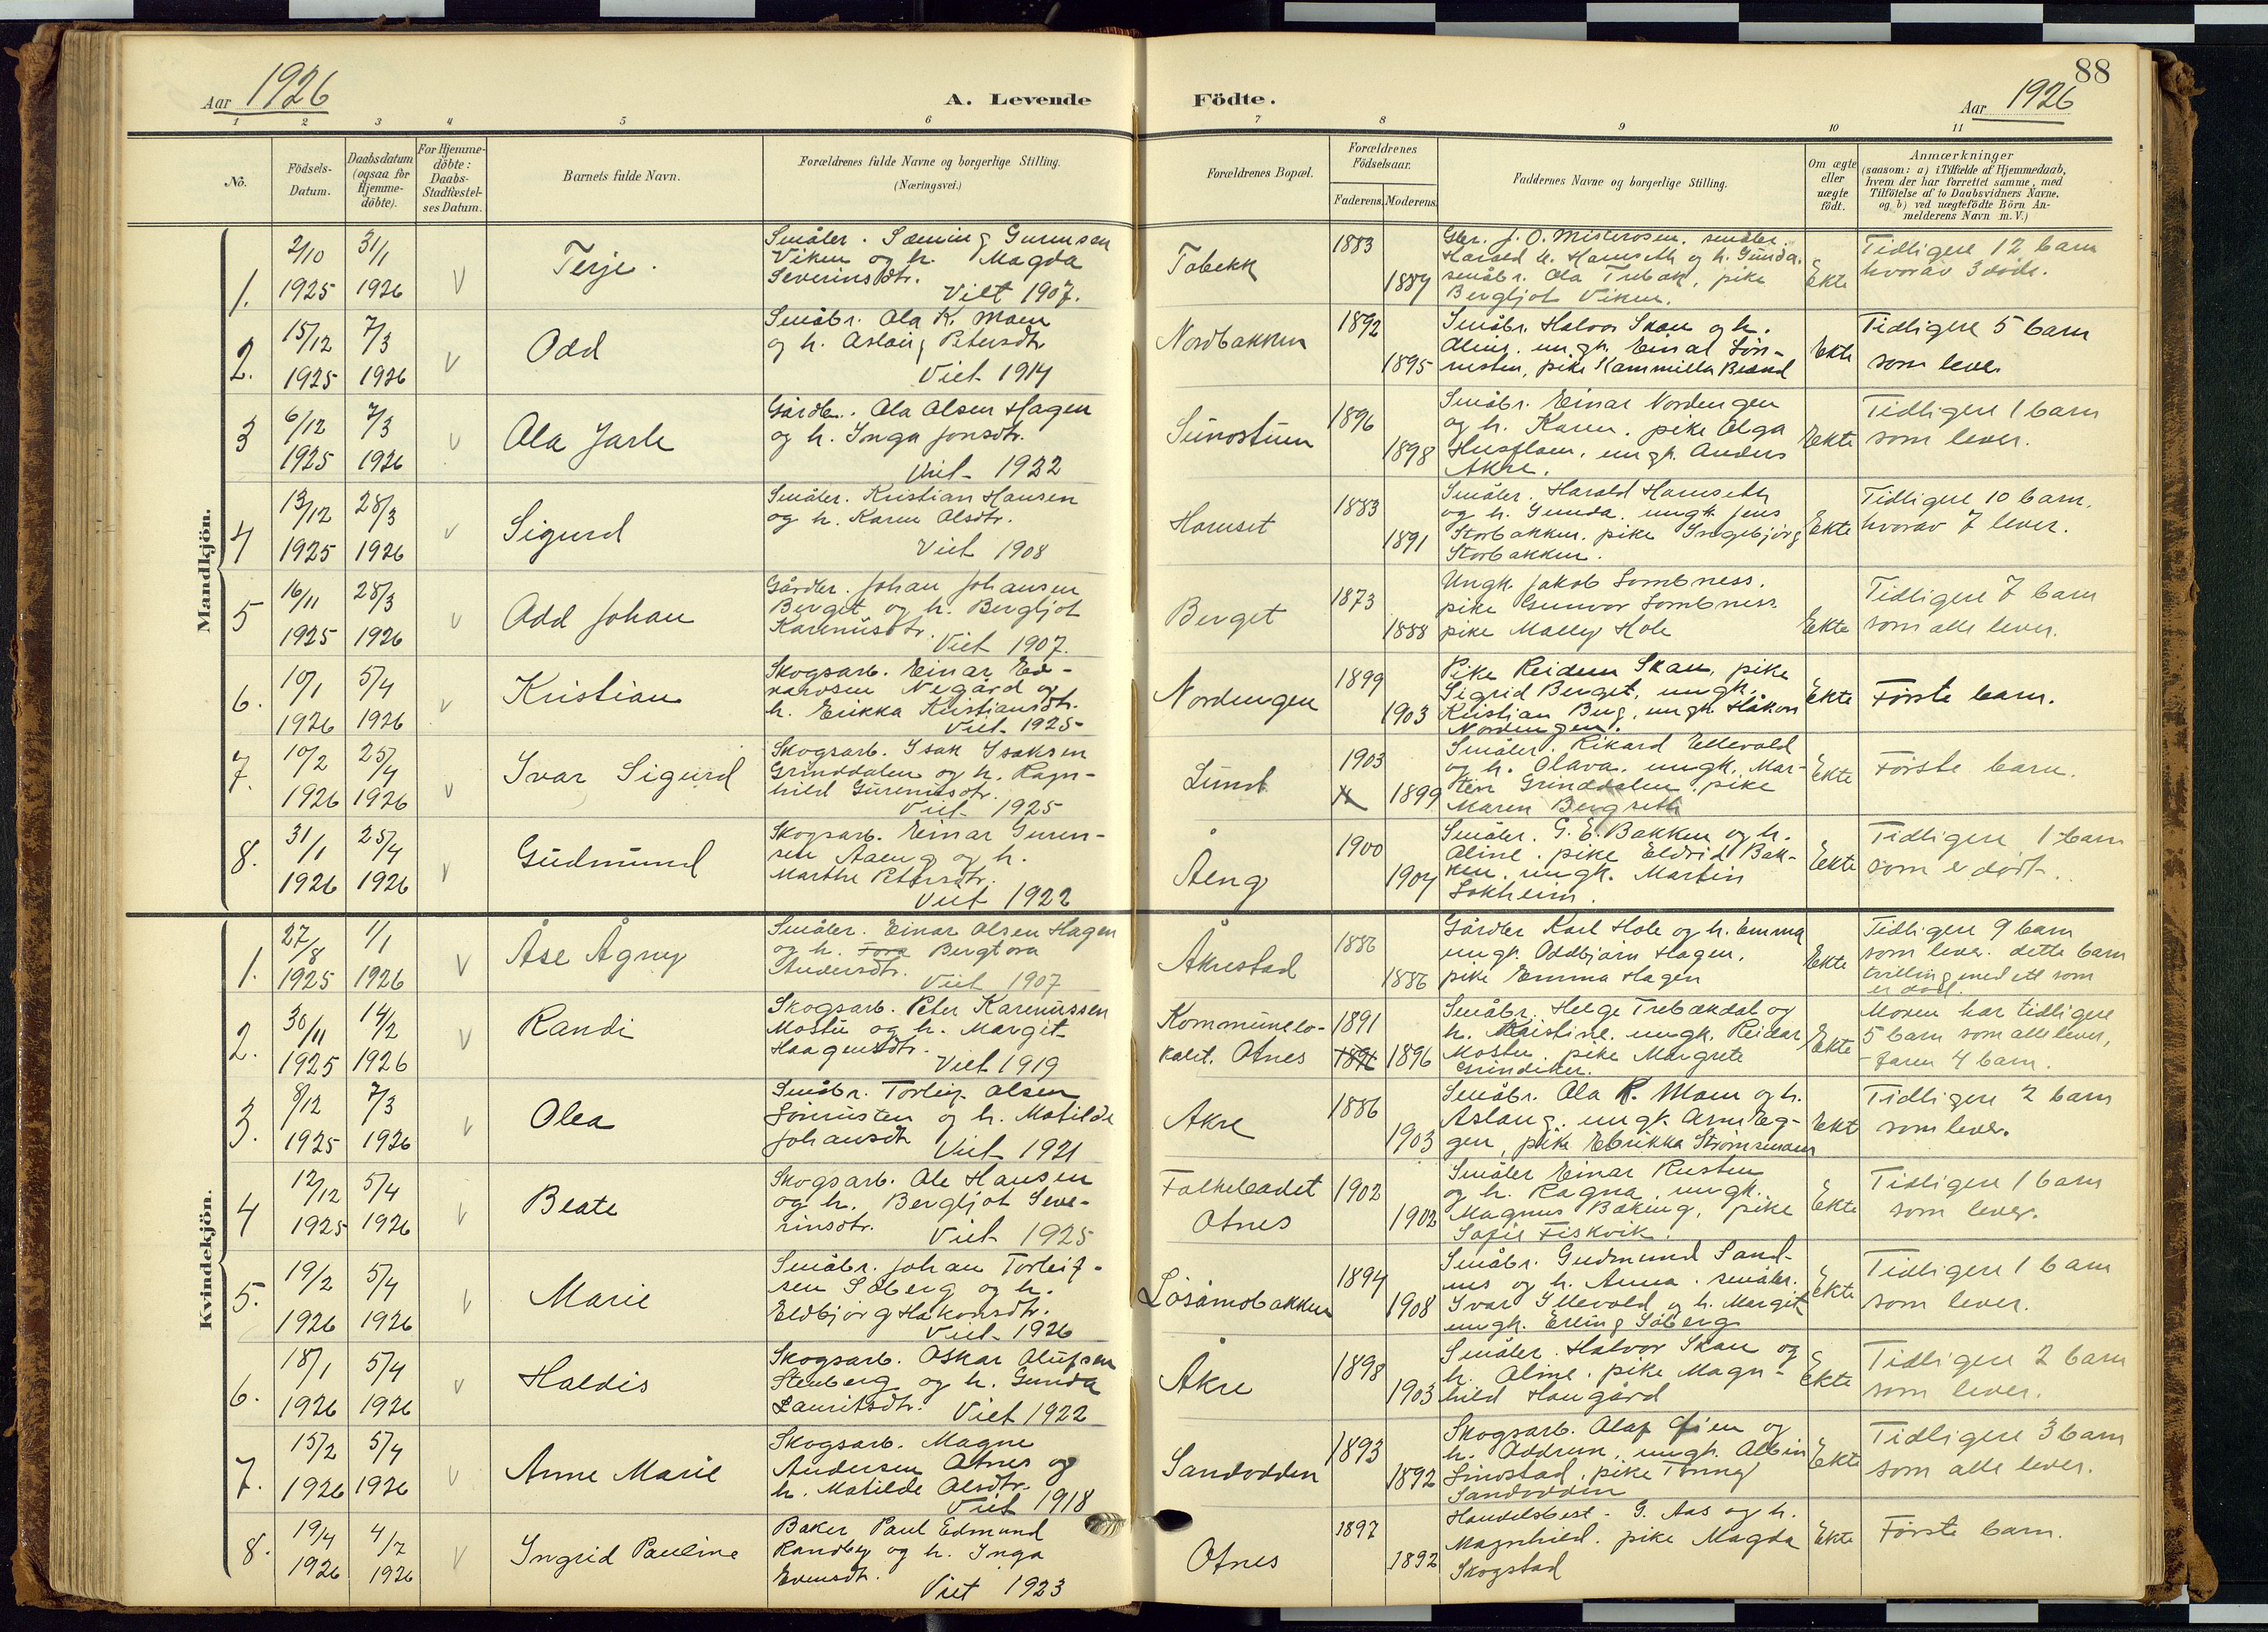 88
Aar 1926
A. Levende Födte.
Aar 1926
1 2 3 4 5 6 7 8 9 10 11
No.
Födsels-
Datum.
Daabsdatum
(ogsaa for
Hjemme-
döbte).
For Hjemme-
döbte:
Daabs-
Stadfæstel-
ses Datum.
Barnets fulde Navn.
Forældrenes fulde Navne og borgerlige Stilling.
(Næringsvei.)
Forældrenes Bopæl.
Forældrenes
Födselsaar.
Faderens. Moderens.
Faddernes Navne og borgerlige Stilling.
Om ægte
eller
uægte
födt.
Anmærkninger
(saasom: a) i Tilfælde af Hjemmedaab,
hvem der har forrettet samme, med
Tilföielse af to Daabsvidners Navne.
og b) ved uægtefödte Börn An-
melderens Navn m. V.)
Mandkjön.
1.
2/10
1925
31/1
1926
Terje.
Småbr. Sæming Gunnsen
Viken og h. Magda
Severinsdtr.
Viet 1907.
Tobekk
1883
1887
Harald H. Harnseth og h. Gunda.
småbr. Ola Trebæk, pike
Bergljot Viken.
Ekte
Tidligere 12 barn
hvorav 3 döde.
2.
15/12
1925
7/3
1926
Odd
Småbr. Ola K. Moen
og h. Aslaug Petersdtr
Viet 1914
Nordbakken
1892
1895
Småbr. Halvor Skau og h.
Aline. ungk. Einar Lön-
nusten, pike Kammilla Brænd
Ekte
Tidligere 5 barn
som lever
3
6/12
1925
7/3
1926
Ola Jarle
Gårdbr. Ola Olsen Hagen
og h. Inga Jonsdtr.
Viet 1922
Sunostuen
1896
1898
Småbr. Einar Nordengen
og h. Karen. pike Olga
Husfloen, ungk. Anders
Akre.
Ekte
Tidligere 1 barn
som lever.
4
13/12
1925
28/3
1926
Sigurd
Småbr. Kristian Hansen
og h. Karen Olsdtr.
Viet 1908
Harnset
1883
1891
Småbr. Harald Harnseth
og h. Gunda. ungk. Jens
Storbakken. pike Ingebjörg
Storbakken.
Ekte
Tidligere 10 barn,
hvorav 7 lever.
5
16/11
1925
28/3
1926
Odd Johan
Gårdbr. Johan Johansen
Berget og h. Bergljot
Karenusdtr.
Viet 1907.
Berget
1873
1888
Ungk. Jakob Lombness.
pike Gunvor Lombness
pike Mally Hole
Ekte
Tidligere 7 barn
som alle lever.
6.
10/1
1926
5/4
1926
Kristian
Skogsarb. Einar Ed-
vardsen Negård og
h. Erikka Kristiansdtr.
Viet 1925
Nordengen
1899
1903
Pike Reidun Skau, pike
Sigrid Berget, ungk.
Kristian Berg, ungk. Håkon
Nordengen.
Ekte
Förste barn.
7.
10/2
1926
25/4
1926
Ivar Sigurd
Skogsarb. Isak Isaksen
Grinddalen og h. Ragn-
hild Gurenusdtr.
Viet 1925
Lund
1903
1899
Småbr. Rikard Ellevold
og h. Olava. ungk. Mar-
ten Grinddalen. pike
Maren Bergseth
Ekte
Förste barn.
8.
31/1
1926
25/4
1926
Gudmund
Skogsarb. Einar Guren-
sen Aaeng og h.
Marthe Petersdtr.
Viet 1922
Åeng
1900
1904
Småbr. G. E. Bakken og h.
Aline. pike Eldrid Bak-
ken. ungk. Martin
Lokheim.
Ekte
Tidligere 1 barn
som er dödt.
Kvindekjön.
1.
27/8
1925
1/1
1926
Åse Ågny
Småbr. Einar Olsen Hagen
og h. Bergtora
Andersdtr.
Viet 1907
Åkrestad
1886
1886
Gårdbr Karl Hole og h. Emma
ungk. Oddbjörn Hagen,
pike Emma Hagen
Ekte
Tidligere 9 barn
som lever. dette barn
tvilling med ett som
er död.
2.
30/11
1925
14/2
1926
Randi
Skogsarb. Peter Karenussen
Mostu og h. Margit
Haagensdtr.
Viet 1919
Kommunelo-
kalet. Otnes
1891
1896
Småbr. Helge Trebækdal og
h. Kristine. ungk. Reidar
Mostu. pike Margrete
Grindeten.
Ekte
Moren har tidligere
5 barn som alle lever,
- faren 4 barn.
3.
8/12
1925
7/3
1926
Olea
Småbr. Torleif Olsen
Lönnusten og h. Matilde
Johansdtr
Viet 1921
Akre
1886
1903
Småbr. Ola K. Moen og h.
Aslaug. ungk. Arne Eg-
gen, pike Erikka Strömsmoen
Ekte
Tidligere 2 barn
som lever.
4
12/12
1925
5/4
1926
Beate
Skogsarb. Ole Hansen
og h. Bergljot Seve-
rinsdtr.
Viet 1925
Folkebadet
Otnes
1902
1902
Småbr Einar Rusten
og h. Ragna. ungk.
Magnus Bæking, pike
Sofie Fiskvik.
Ekte
Tidligere 1 barn
som lever.
5.
19/2
1926
5/4
1926
Marie
Småbr. Johan Torleif-
sen Söberg og h.
Eldbjörg Håkonsdtr.
Viet 1926
Lösåmobakken
1894
1908
Småbr. Gudmund Sand-
nes og h. Anna. småbr.
Ivar Illevold og h. Margit
ungk. Erling Söberg
Ekte
Tidligere 1 barn
som lever.
6.
18/1
1926
5/4
1926
Haldis
Skogsarb. Oskar Olufsen
Stenberg og h. Gunda
Lauritsdtr.
Viet 1922
Åkre
1898
1903
Småbr. Halvor Skau og
h. Aline. pike Magn-
hild Haugård
Ekte
Tidligere 2 barn
som lever.
7.
15/2
1926
5/4
1926
Anne Marie
Skogsarb. Magne
Andersen Otnes og
h. Matilde Olsdtr.
Viet 1918
Sandodden
1893
1892
Skogsarb. Olaf Öien og
h. Oddrun. ungk. Albin
Sinostad, pike Tonny
Sandodden
Ekte
Tidligere 3 barn
som alle lever.
8.
19/4
1926
4/7
1926
Ingrid Pauline
Baker Paul Edmund
Randby og h. Inga
Evensdtr.
Viet 1923
Otnes
1897
1892
Handelsbest. G. Aas og h.
Magnhild. pike Magda
Skogstad
Ekte
Förste barn.